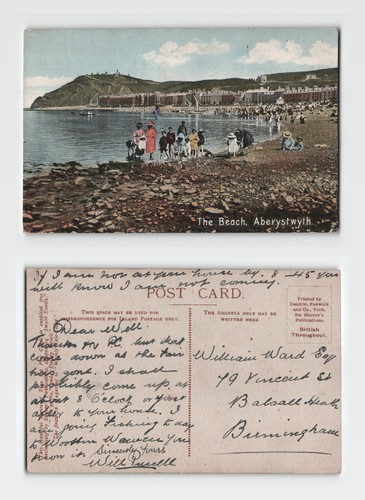 The Beach. Aberystwyth
If I am not at your house by 8-45 you
will know I am not coming.
POST CARD.
THIS SPACE MAY BE USED FOR
CORRESPONDENCE FOR INLAND POSTAGE ONLY.
THE ADDRESS ONLY MAY BE
WRITTEN HERE.
Printed by
and Co., York,
for Shurey's
Publications.
British
Throughout.
Dear Will.
Thanks for P.C. but that
come down at the
has gone. I shall
probably come up at
about 8 O'clock or just
after to your house. I
am going Fishing to day
to Wootton Wawen you
know it. Sincerely Yours
Will
William Ward Esq
79 Vincent St
Balsall Heath
Birmingham